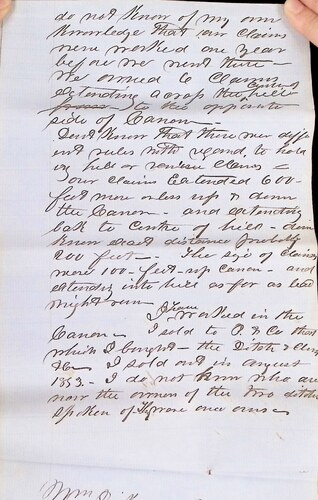 do not Know of my own
Knowledge that our claims
were worked one year
before we went there -
We owned 6 claims
extending across the
to the opposite
side of Canon -
Dont Know that there were differ
ent rules with regard to hold
ing hill or ravine claims -
our claims Extended 600-
feet more or less up & down
the Canon - and extending
back to centre of hill - dont
know exact distance probably
200 feet - The size of claims
were 100-feet-up canon - and
extending into hill as far as lead
might run
I have
worked in the
Canon - I sold to P. & Co that
which I bought - the Ditch & claims
&c. I sold out in august
1853 - I do not know who are
now the owners of the two ditches
spoken of
Wm